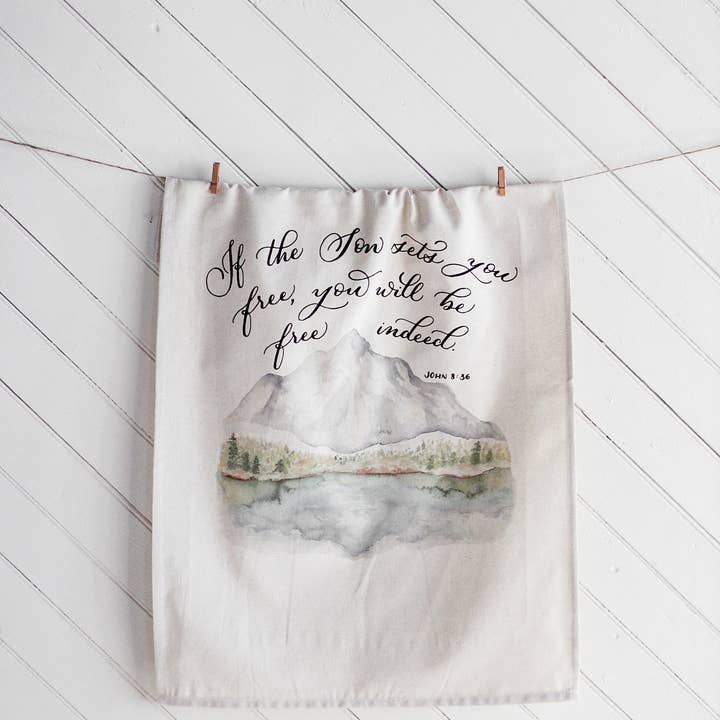 If the Son sets you
free, you will be
free indeed.
JOHN 8:36